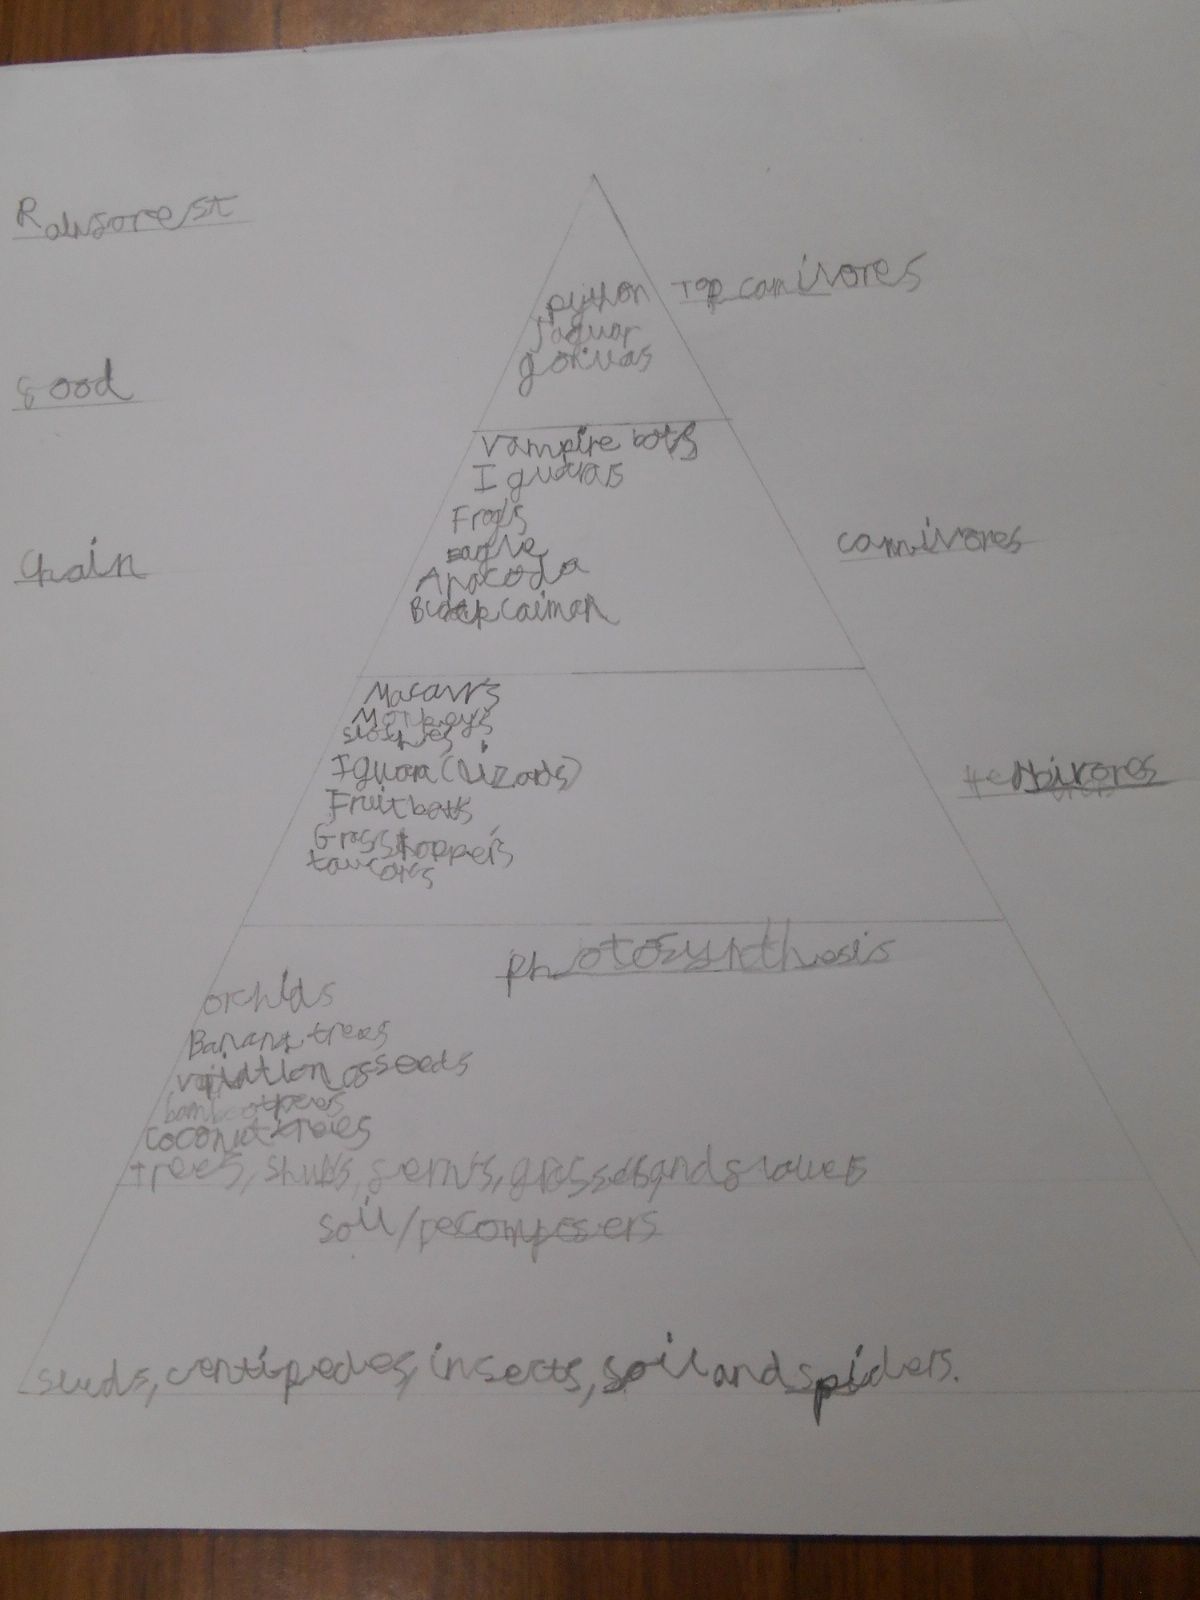 Rainforest
food
chain
python
Jaguar
gorillas
Top carnivores
Vampire bats
Iguanas
Frogs
eagle
Anacoda
Black caiman
carnivores
Macaws
Monkeys
sloths
Iguana (Lizards)
Fruit bats
Grasshoppers
toucans
Herbivores
Photosynthesis
orchids
Banana trees
variation of seeds
bamboo trees
coconut trees
trees, shrubs, ferns, grasses, and flowers
soil/Decomposers
centipedes, insects, soil and spiders.